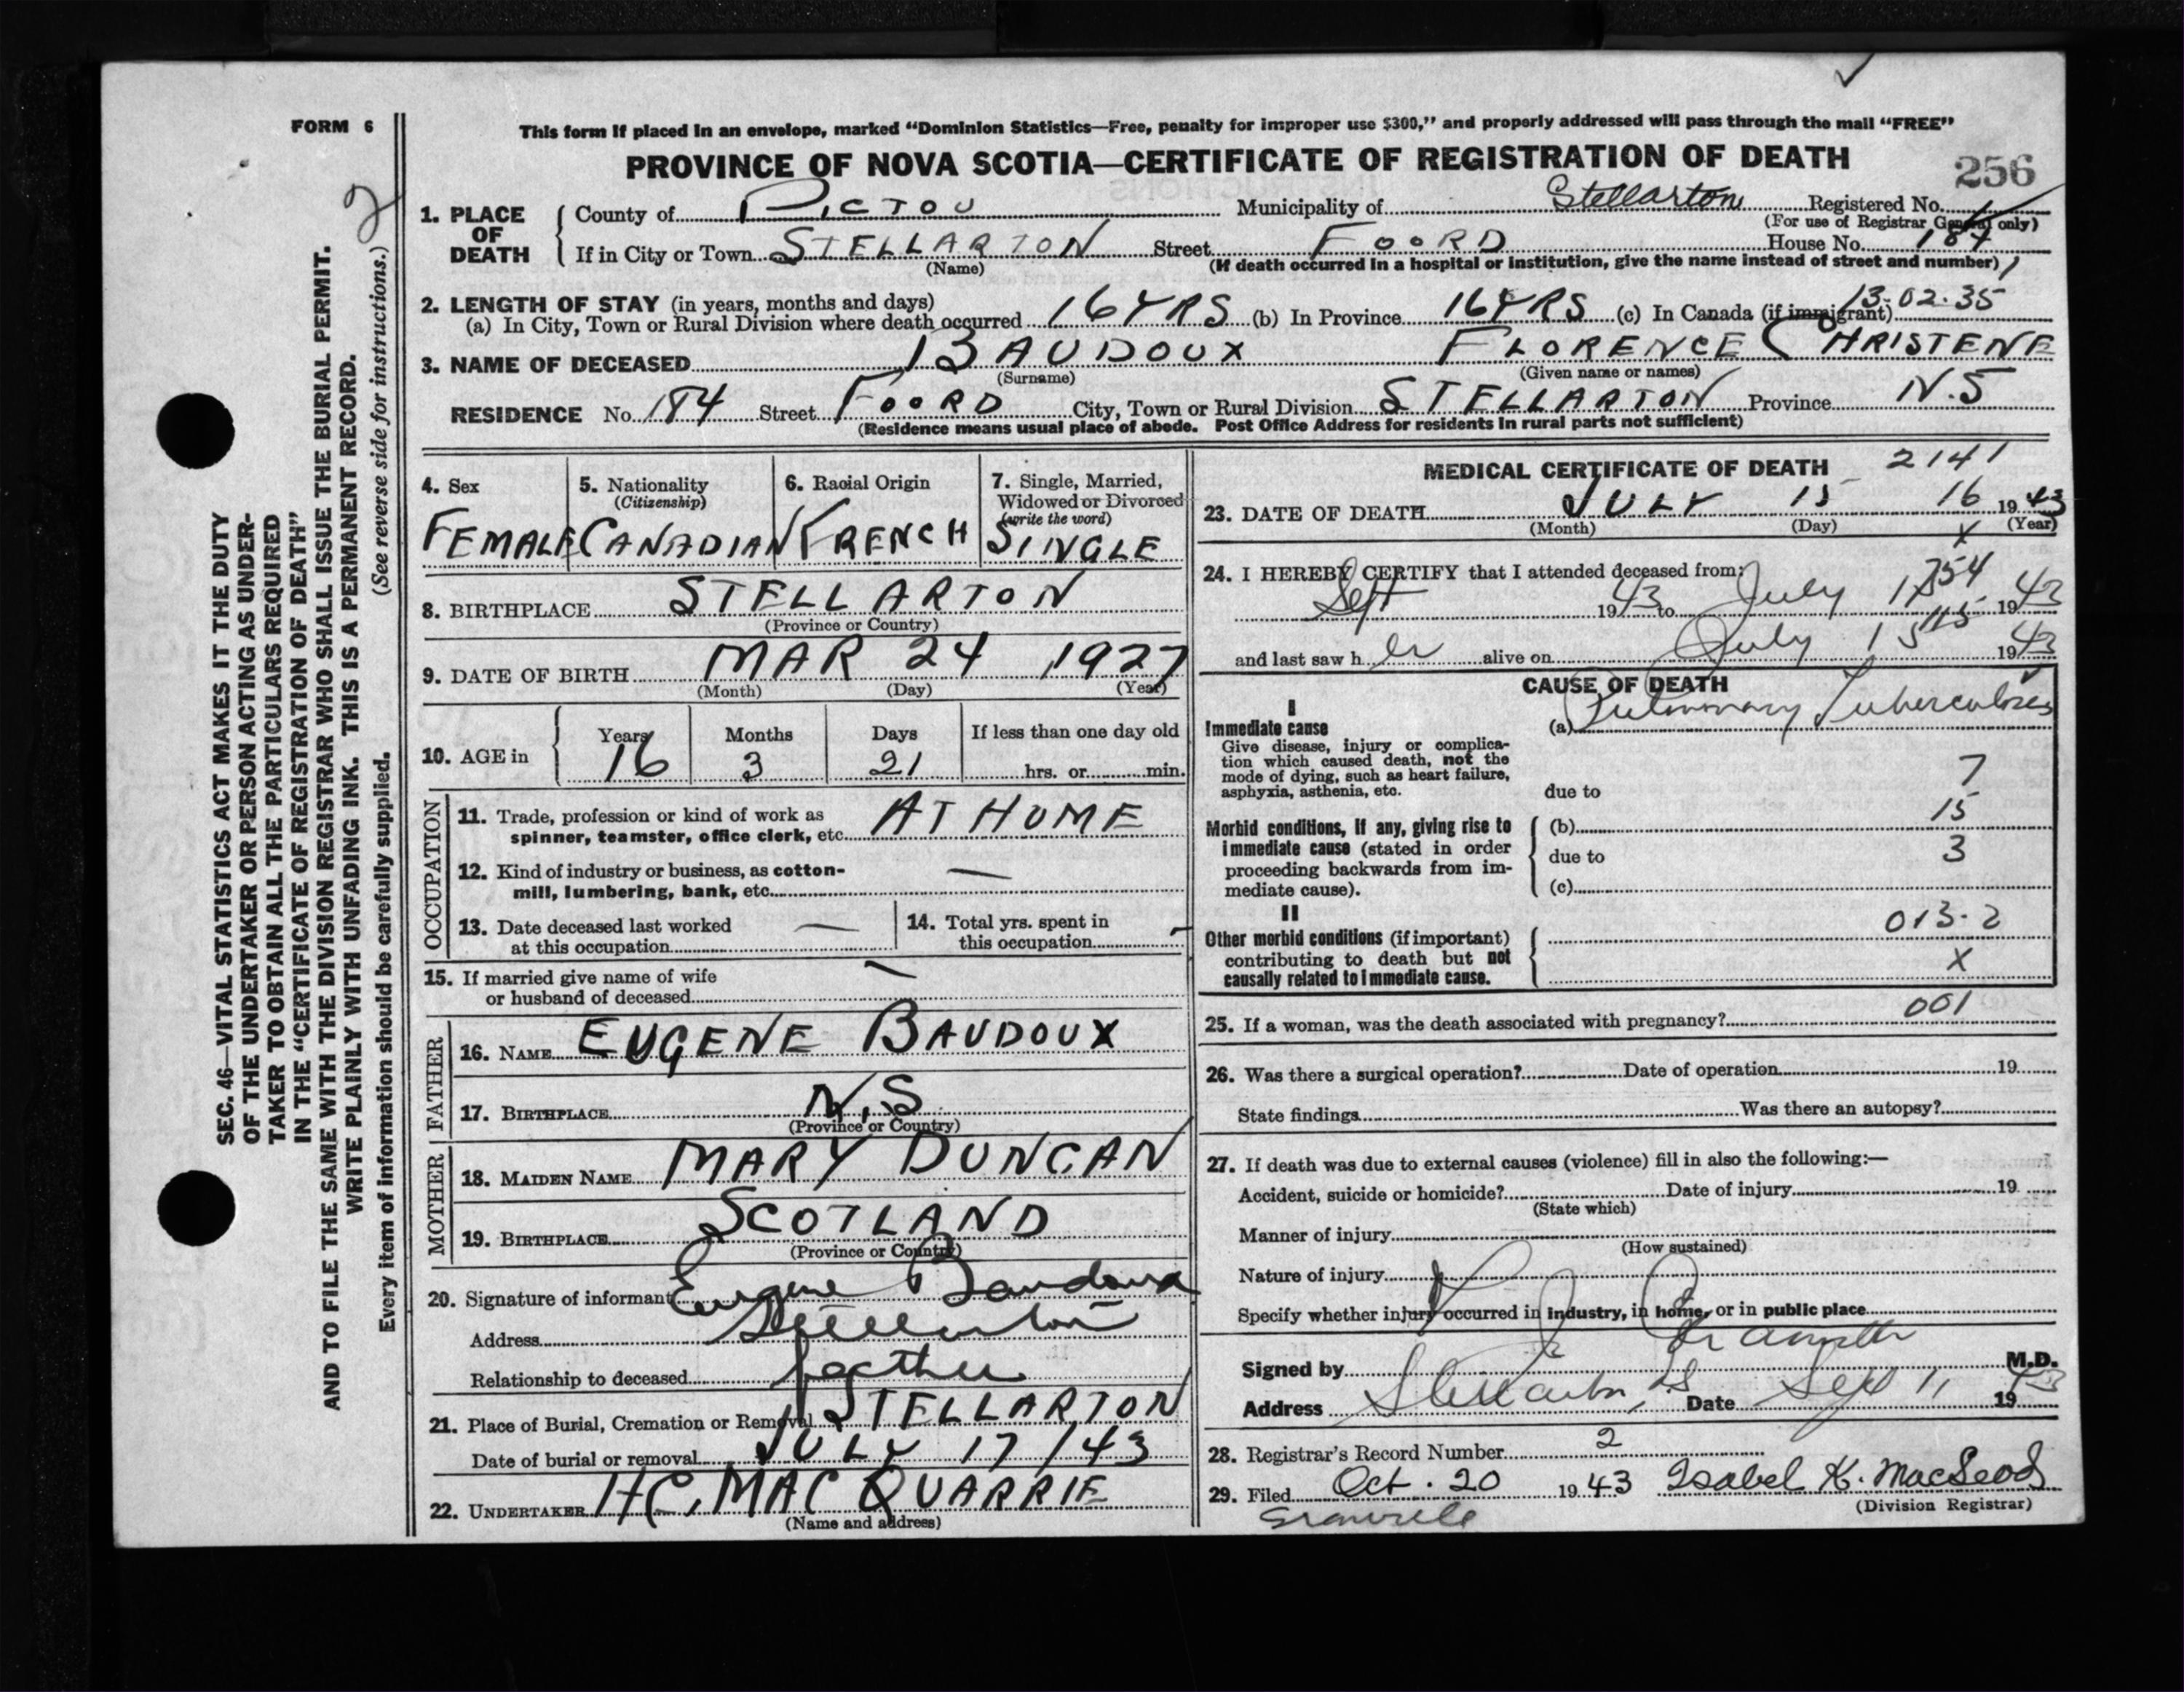 FORM 6
2
SEC. 46—VITAL STATISTICS ACT MAKES IT THE DUTY
OF THE UNDERTAKER OR PERSON ACTING AS UNDER-
TAKER TO OBTAIN ALL THE PARTICULARS REQUIRED
IN THE "CERTIFICATE OF REGISTRATION OF DEATH"
AND TO FILE THE SAME WITH THE DIVISION REGISTRAR WHO SHALL ISSUE THE BURIAL PERMIT.
WRITE PLAINLY WITH UNFADING INK. THIS IS A PERMANENT RECORD.
(See reverse side for instructions.)
Every item of information should be carefully supplied.
This form if placed in an envelope, marked "Dominion Statistics—Free, penalty for improper use $300," and properly addressed will pass through the mail "FREE"
PROVINCE OF NOVA SCOTIA—CERTIFICATE OF REGISTRATION OF DEATH
256
1. PLACE OF DEATH
County of PICTOU Municipality of Stellarton Registered No.
(For use of Registrar General only)
If in City or Town STELLARTON Street FOORD House No. 184
(Name) (If death occurred in a hospital or institution, give the name instead of street and number)
2. LENGTH OF STAY (in years, months and days) 13-02-35
(a) In City, Town or Rural Division where death occurred 16 YRS (b) In Province 16 YRS (c) In Canada (if immigrant)
3. NAME OF DECEASED BAUDOUX FLORENCE CHRISTENE
(Surname) (Given name or names)
RESIDENCE No. 184 Street FOORD City, Town or Rural Division STELLARTON Province N.S
(Residence means usual place of abode. Post Office Address for residents in rural parts not sufficient)
4. Sex
FEMALE
5. Nationality
(Citizenship)
CANADIAN
6. Racial Origin
FRENCH
7. Single, Married,
Widowed or Divorced
(write the word)
SINGLE
8. BIRTHPLACE STELLARTON
(Province or Country)
9. DATE OF BIRTH MAR 24 1927
(Month) (Day) (Year)
10. AGE in
Years Months Days If less than one day old
16 3 21 hrs. or min.
OCCUPATION
11. Trade, profession or kind of work as
spinner, teamster, office clerk, etc. AT HOME
12. Kind of industry or business, as cotton-
mill, lumbering, bank, etc. —
13. Date deceased last worked
at this occupation —
14. Total yrs. spent in
this occupation -
15. If married give name of wife
or husband of deceased —
FATHER
16. NAME EUGENE BAUDOUX
17. BIRTHPLACE N.S
(Province or Country)
MOTHER
18. MAIDEN NAME MARY DUNCAN
19. BIRTHPLACE SCOTLAND
(Province or Country)
20. Signature of informant Eugene Baudoux
Address Stellarton
Relationship to deceased father
21. Place of Burial, Cremation or Removal STELLARTON
Date of burial or removal JULY 17/43
22. UNDERTAKER H.C. MACQUARRIE
(Name and address)
MEDICAL CERTIFICATE OF DEATH 2141
23. DATE OF DEATH JULY 15 16 1943
(Month) (Day) (Year)
X
24. I HEREBY CERTIFY that I attended deceased from:
Sept 1943 to July 1943
and last saw her alive on July 15 1943
CAUSE OF DEATH
I
Immediate cause
Give disease, injury or complica-
tion which caused death, not the
mode of dying, such as heart failure,
asphyxia, asthenia, etc.
(a) Pulmonary Tuberculosis
7
due to
15
Morbid conditions, if any, giving rise to
immediate cause (stated in order
proceeding backwards from im-
mediate cause).
(b)
due to 3
(c)
II
Other morbid conditions (if important)
contributing to death but not
causally related to immediate cause.
013-2
X
001
25. If a woman, was the death associated with pregnancy?
26. Was there a surgical operation? Date of operation 19
State findings Was there an autopsy?
27. If death was due to external causes (violence) fill in also the following:—
Accident, suicide or homicide? Date of injury 19
(State which)
Manner of injury
(How sustained)
Nature of injury
Specify whether injury occurred in industry, in home, or in public place
Signed by M.D.
Address Stellarton, NS Date Sept 11 1943
28. Registrar's Record Number 2
29. Filed Oct. 20 1943 Isabel K. MacLeod
(Division Registrar)